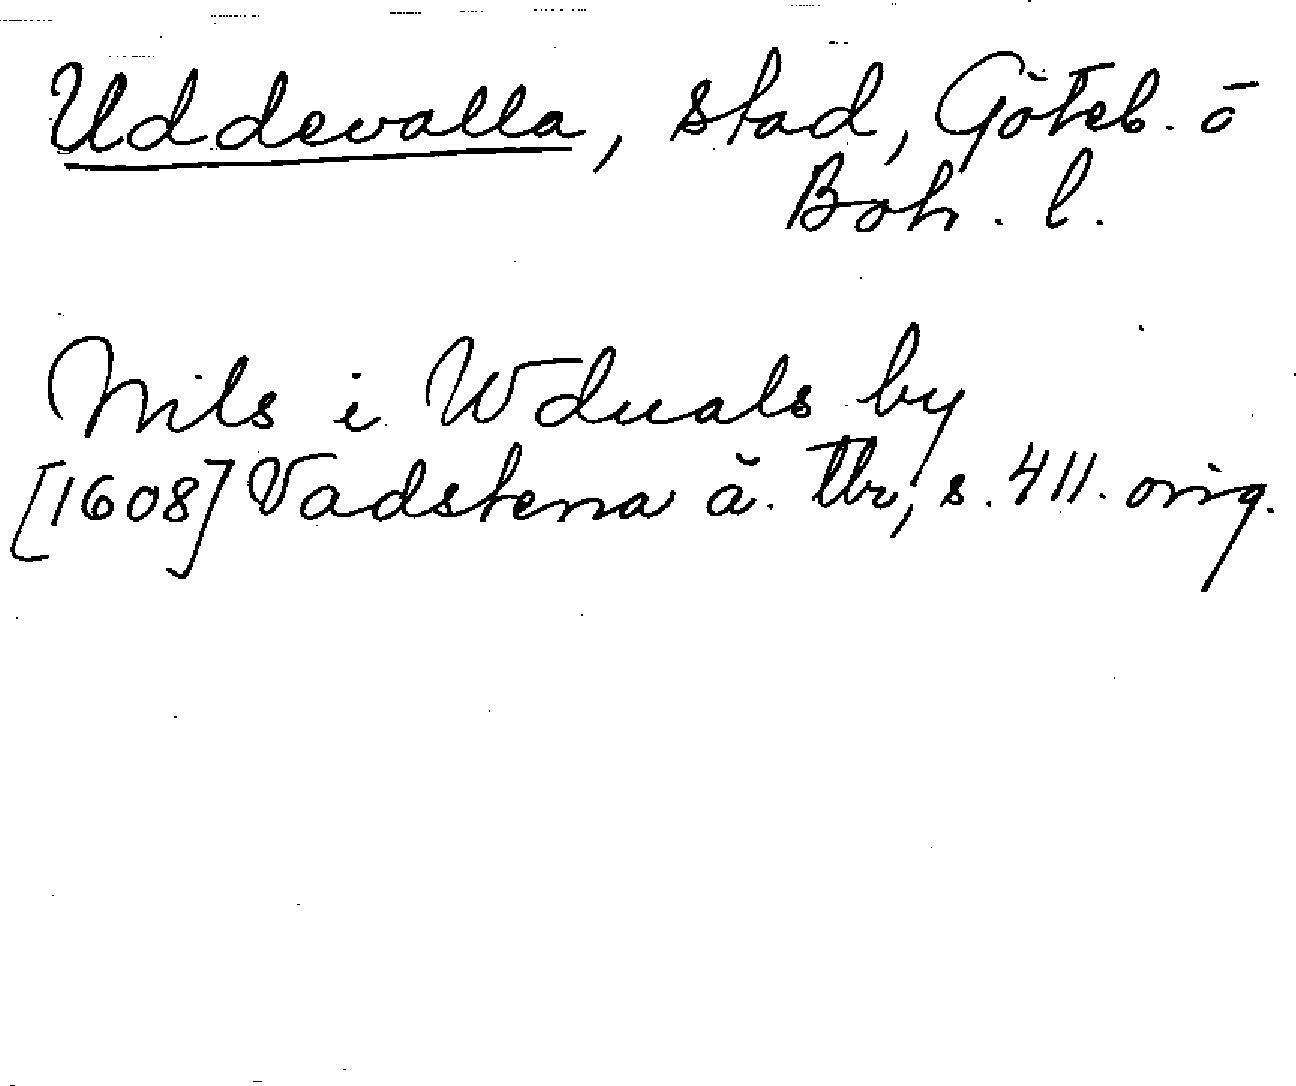 Uddevalla, stad, Göteb. o
Boh. l.
Nils i Wduals by
[1608] Vadstena ä. tbr, s. 411. orig.